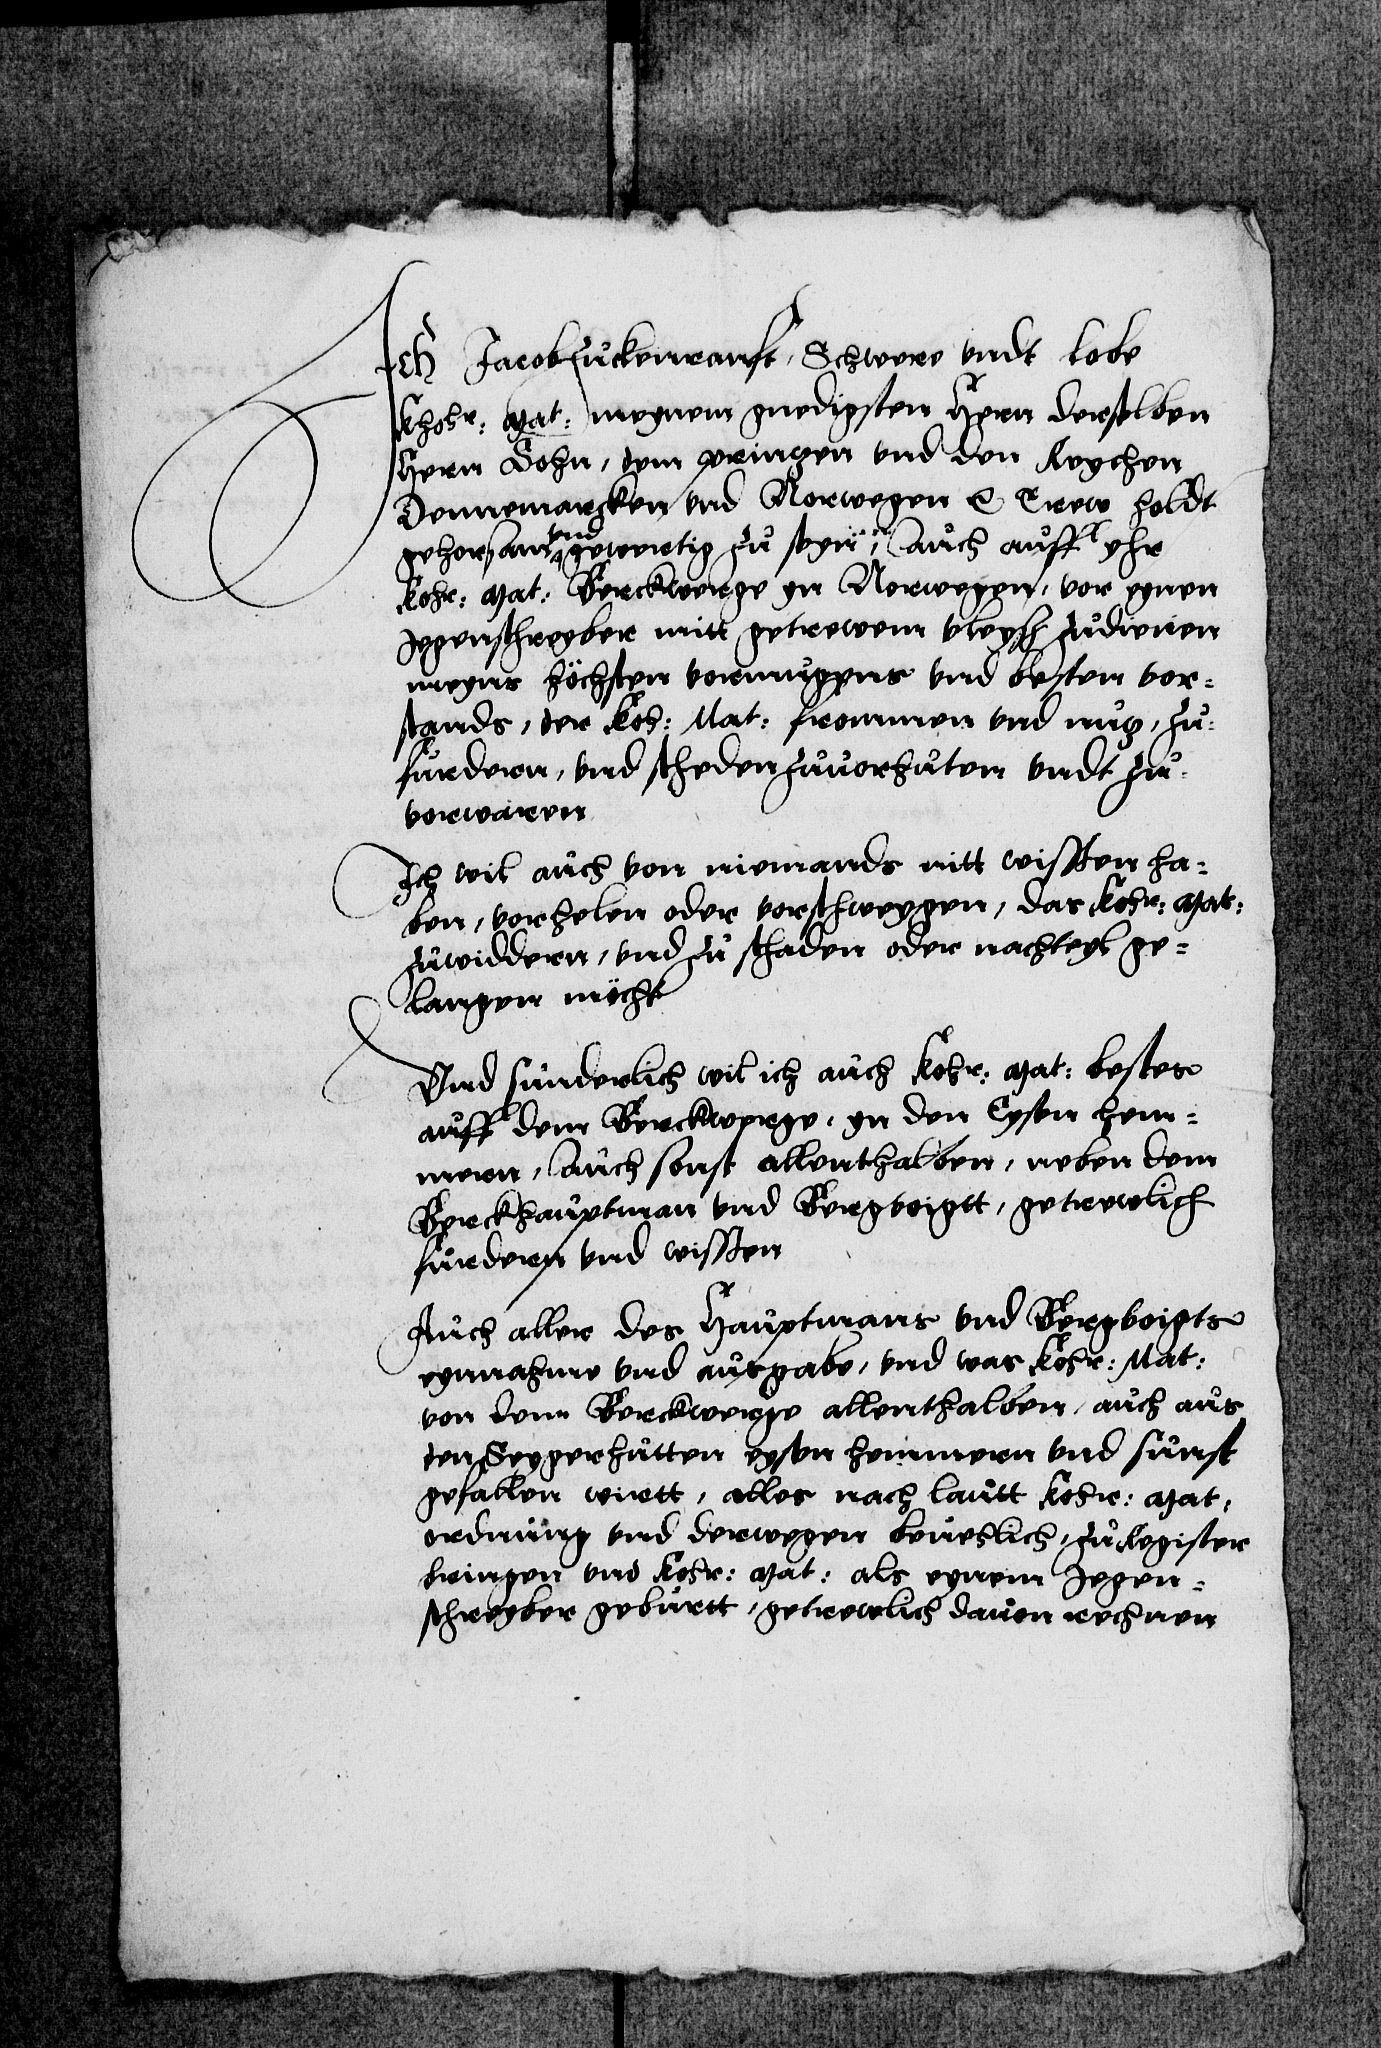 Ich Jacob Zuckenranft, Schwere vndt lobe
Khohr: Mat: meynem gnedigsten Hern derselben
Hern Sohn, dem printzen vnd den Reychen
Dennemarcken vnd Norwegen &c Trew holdt
gehorsam vnd gewertig zů seyn, Auch auff yhr
Kohr: Mat: Berckwerge yn Norwegen, vor eynen
Jegenschreyber mitt getrewem vleysz zůdienen
meyns höchsten vormugens vnd besten vor-
stands, der Koh: Mat: frommen vnd nutz, zů-
furdern, vnd scheden zůuorhuten vndt zů-
vorwaren
Ich wil auch von niemands mitt wissten ha-
ben, vorhelen oder vorschweygen, das Kohr: Mat:
zuwiddern, vnd zů schaden oder nachteyl ge-
langen möcht
Vnd sunderlich wil ich auch Kohr: Mat: bestes
auff dem Berckwerge, yn den Eysen hem-
mern, Auch sonst allenthalben, neben dem
Berckhauptman vnd Bergvoigtt, getrewlich
furdern vnd wissten
Auch aller des Hauptmans vnd Bergvoigts
eynnahme vnd ausgabe, vnd was Kohr: Mat:
von dem Berckwerge allenthalben, auch aus
den Seygerhutten eysen hemmern vnd sunst
gefallen wirtt, alles nach lautt Kohr: Mat:
ordnung vnd derwegen beuehlich, zů Register
bringen vnd Kohr: Mat: als eynem Jegen-
schreyber geburtt, getrewlich dauon rechnen